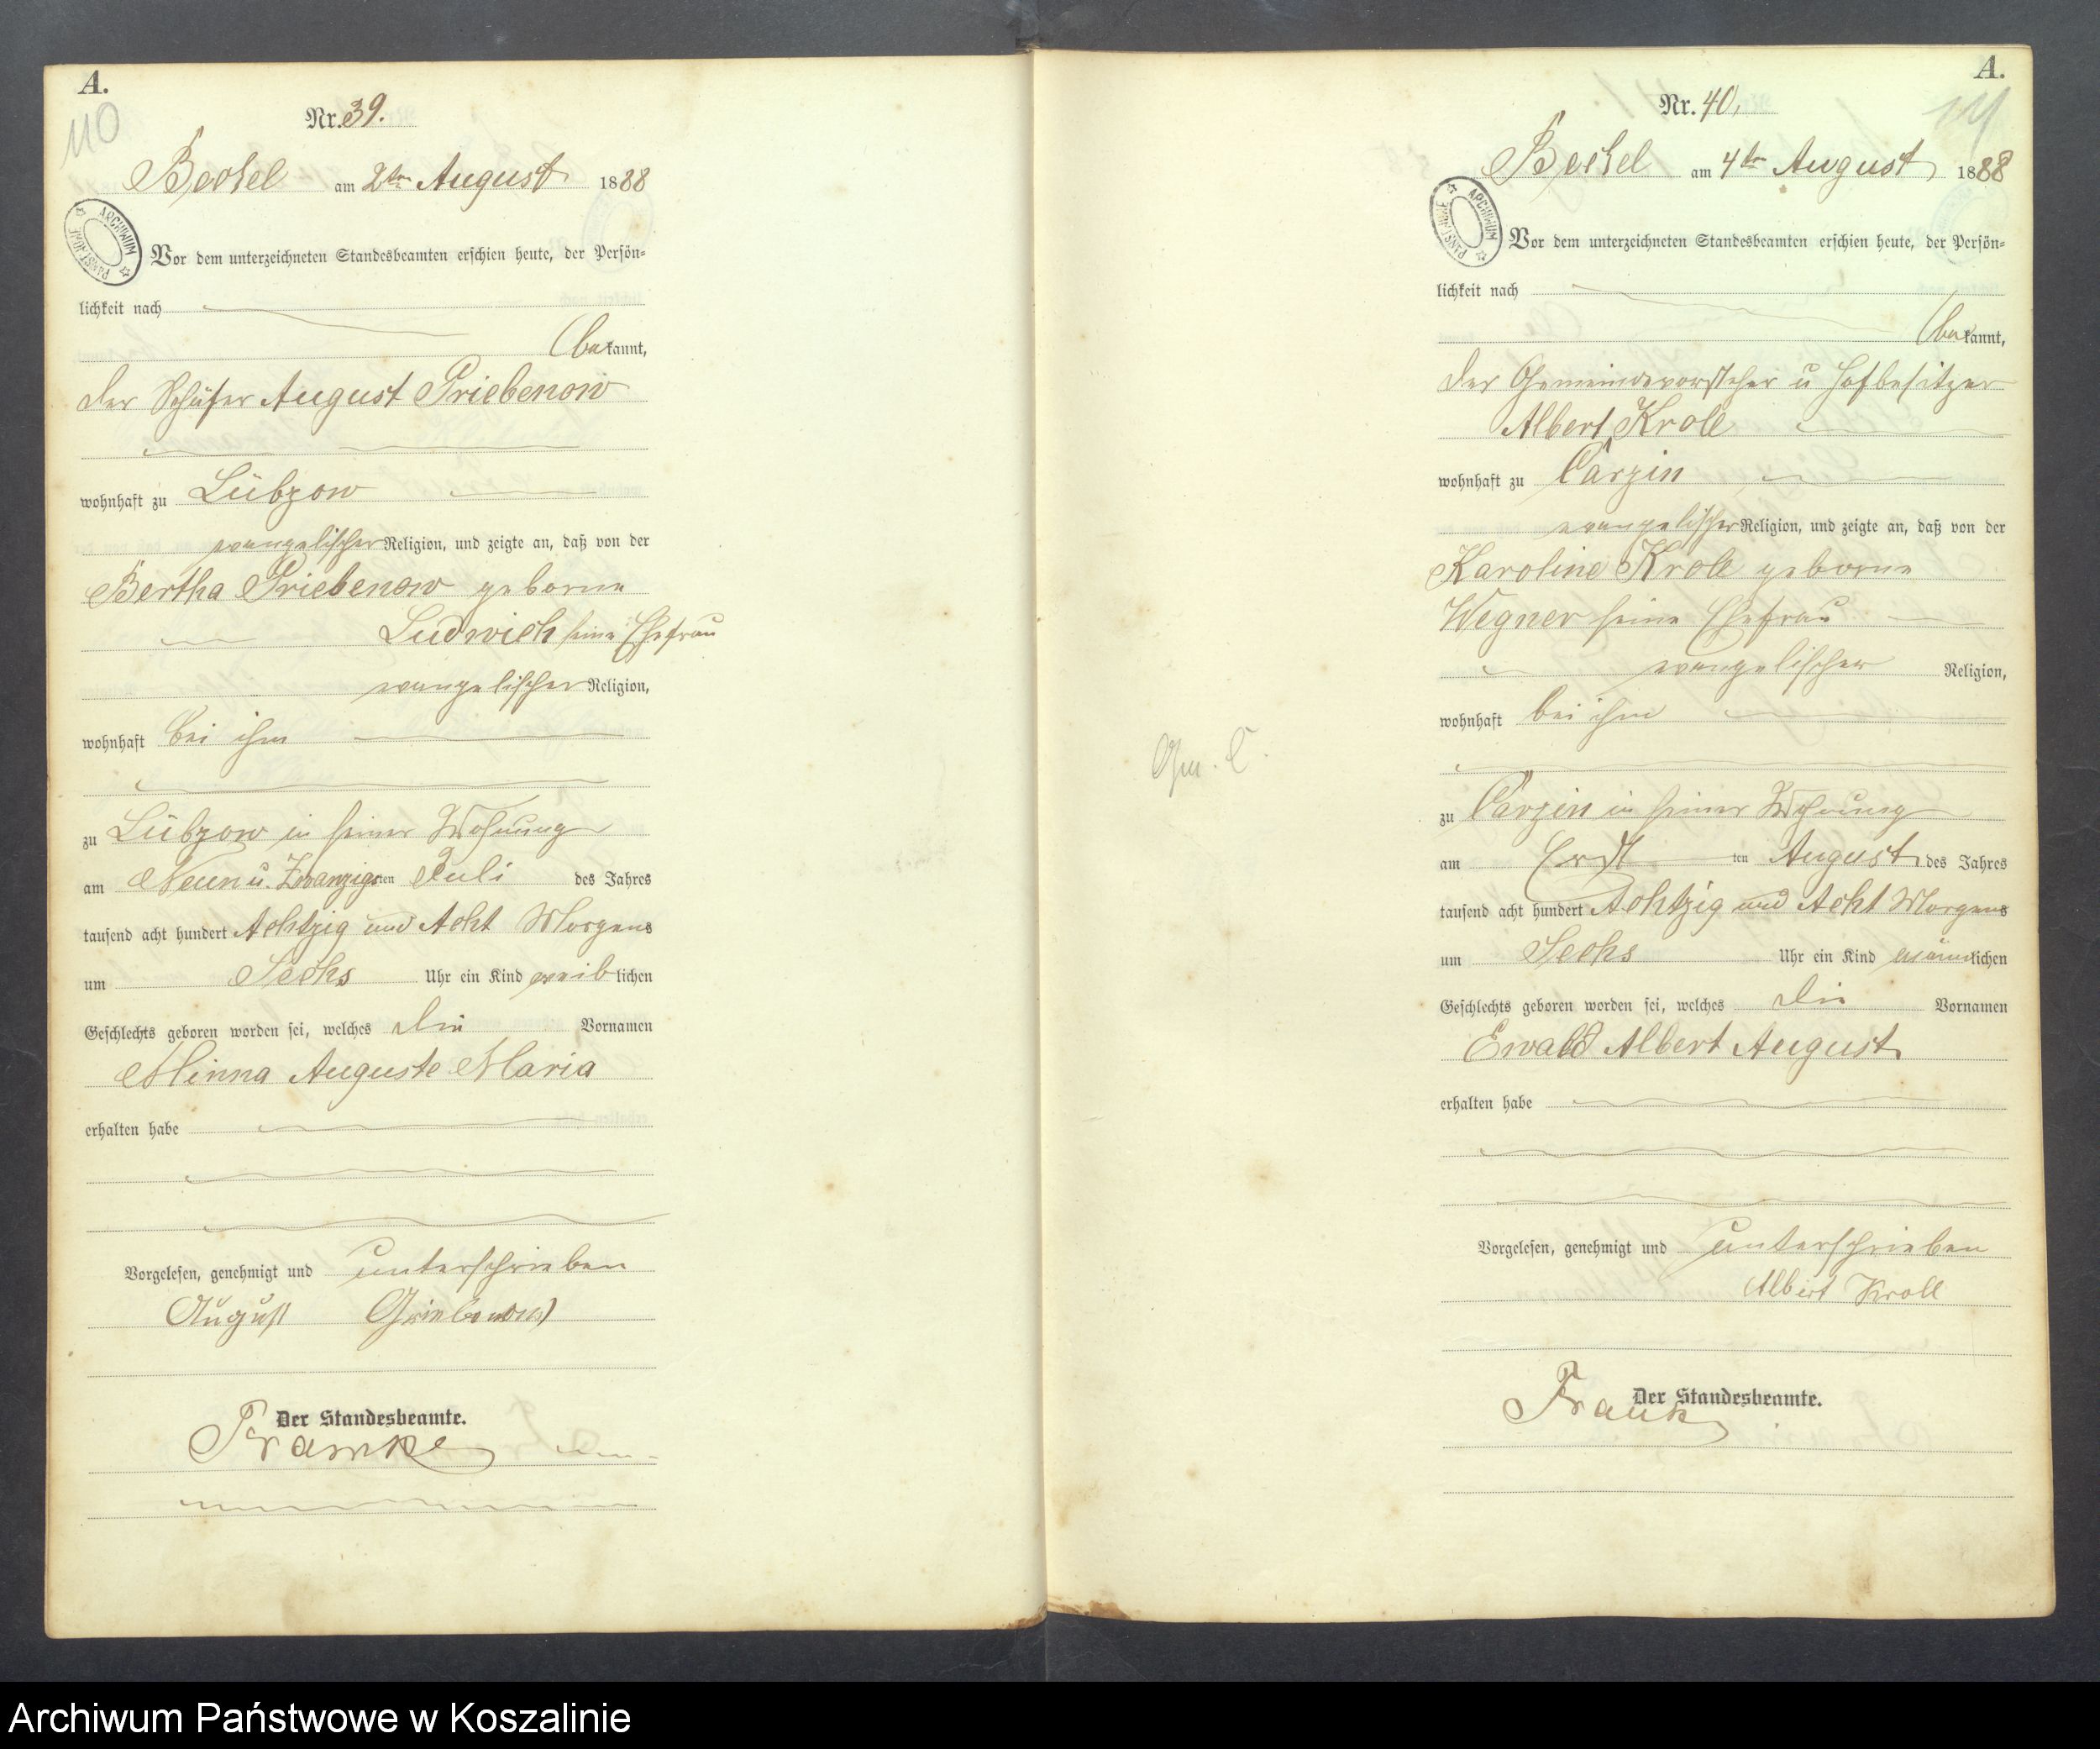 A.
110
Nr. 39.
Beckel am 2ten August 1888
ARCHIWUM PAŃSTWOWE
Vor dem unterzeichneten Standesbeamten erschien heute, der Persön-
lichkeit nach
bekannt,
der Schäfer August Griebenow
wohnhaft zu Lübzow
evangelischer Religion, und zeigte an, daß von der
Bertha Griebenow geborne
Ludwich seine Ehefrau
evangelischer Religion,
wohnhaft bei ihm
zu Lübzow in seiner Wohnung
am Neun u. Zwanzigsten Juli des Jahres
tausend acht hundert Achtzig und Acht Morgens
um Sechs Uhr ein Kind weiblichen
Geschlechts geboren worden sei, welches die Vornamen
Minna Auguste Maria
erhalten habe
Vorgelesen, genehmigt und unterschrieben
August Griebenow
Der Standesbeamte.
Framke
A.
Nr. 40.
Beckel am 4ten August 1888
ARCHIWUM PAŃSTWOWE
Vor dem unterzeichneten Standesbeamten erschien heute, der Persön-
lichkeit nach
bekannt,
der Gemeindevorsteher u Hofbesitzer
Albert Kroll
wohnhaft zu Carzin
evangelischer Religion, und zeigte an, daß von der
Karoline Kroll geborne
Wegner seine Ehefrau
evangelischer Religion,
wohnhaft bei ihm
zu Carzin in seiner Wohnung
am Ersten August des Jahres
tausend acht hundert Achtzig und Acht Morgens
um Sechs Uhr ein Kind männlichen
Geschlechts geboren worden sei, welches die Vornamen
Ewald Albert August
erhalten habe
Vorgelesen, genehmigt und unterschrieben
Albert Kroll
Der Standesbeamte.
Archiwum Państwowe w Koszalinie